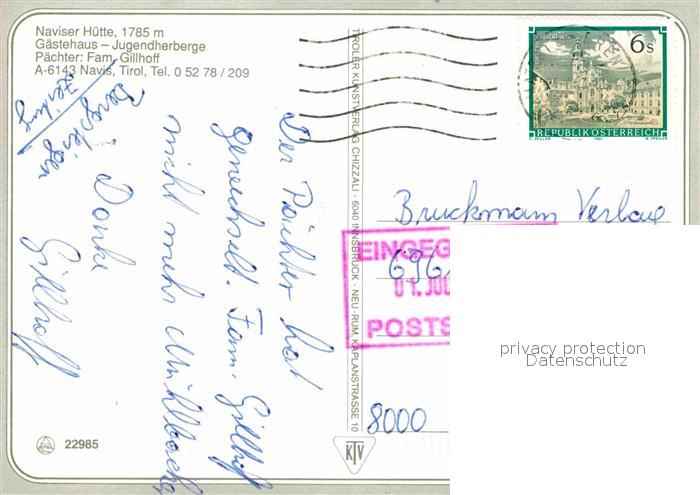 Naviser Hütte, 1785 m
Gästehaus – Jugendherberge
Pächter: Fam. Gillhoff
A-6143 Navis, Tirol, Tel. 0 52 78 / 209
Der Pächter hat
gewechselt. Fam. Gillhoff
nicht mehr Mühlbacher
Danke
Gillhoff
TIROLER KUNSTVERLAG CHIZZALI · 6040 INNSBRUCK - NEU-RUM, KAPLANSTRASSE 10
KTV
22985
6 S
REPUBLIK ÖSTERREICH
Bruckmann Verlag
EINGEG
01.
POSTS
8000
privacy protection
Datenschutz